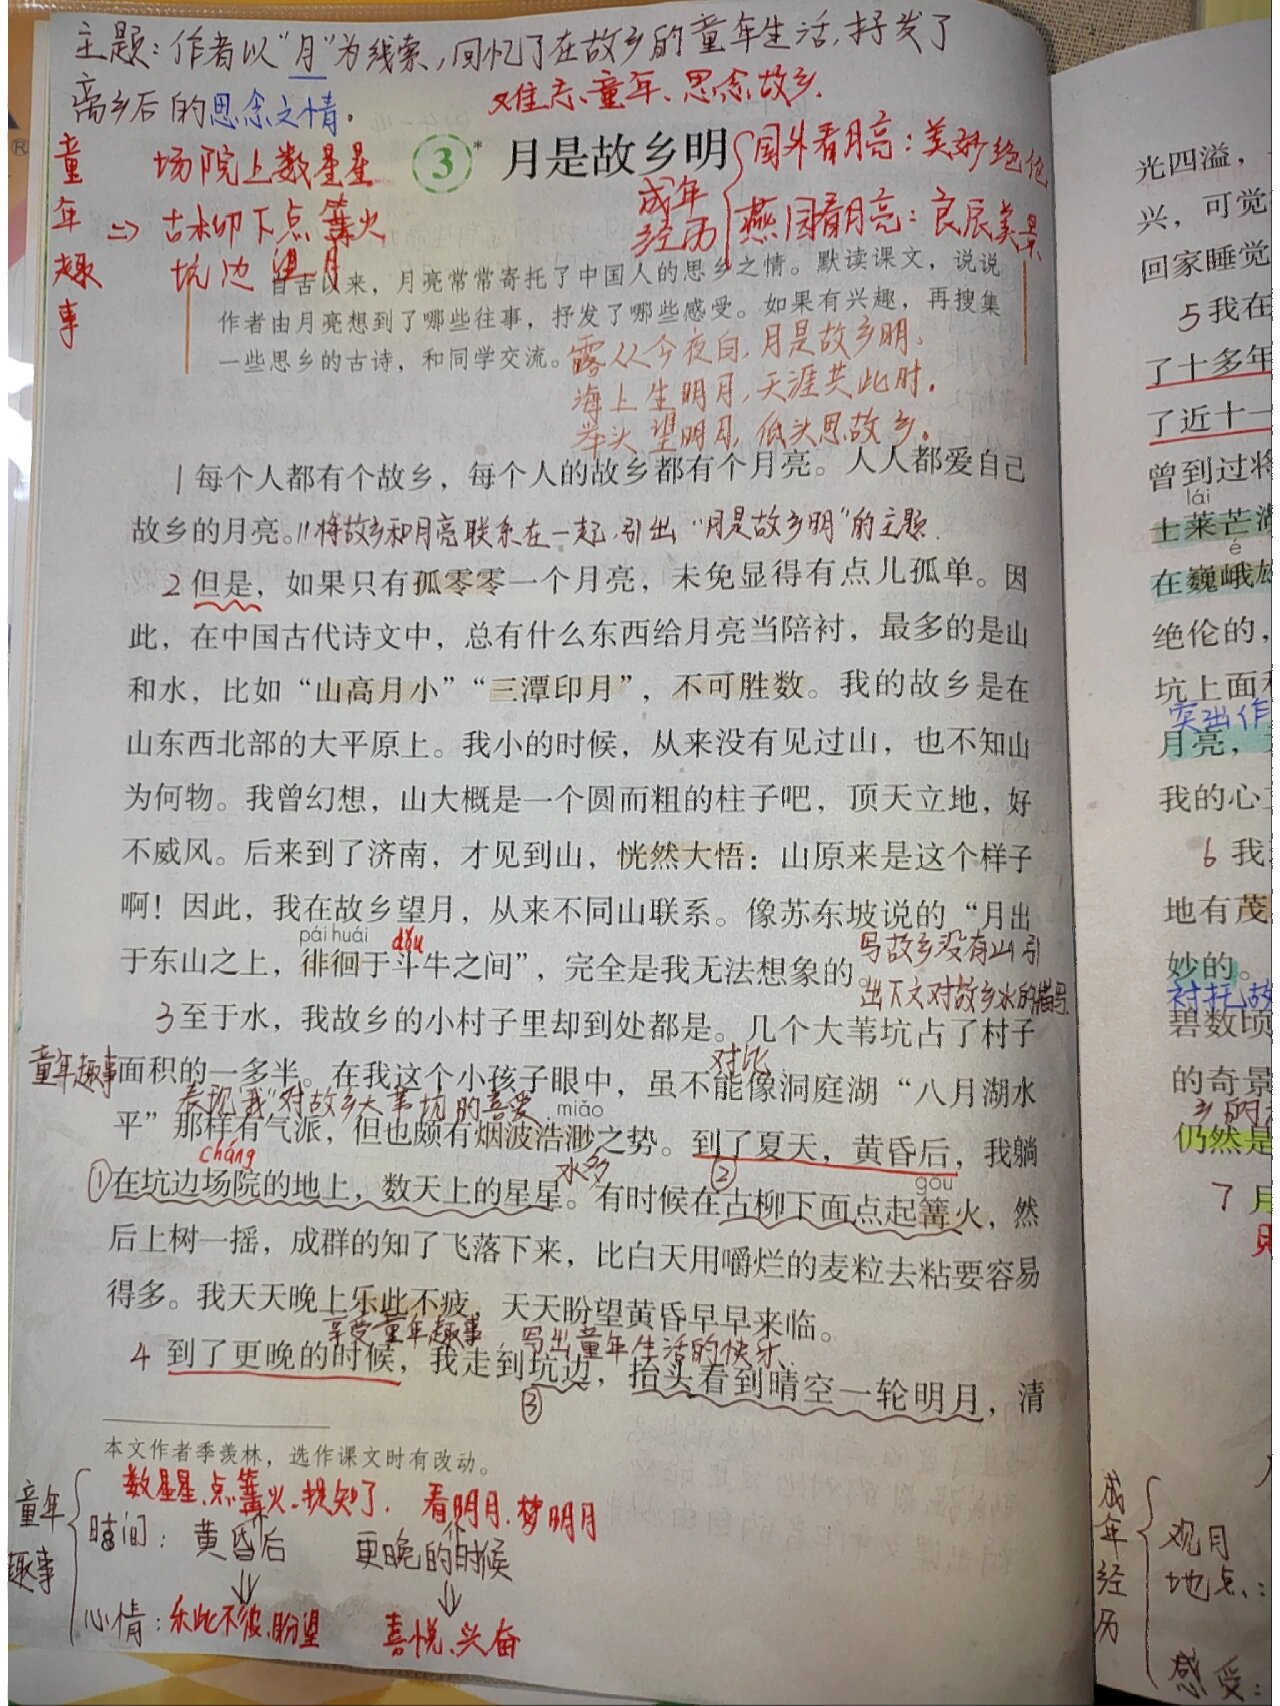 主题：作者以“月”为线索，回忆了在故乡的童年生活，抒发了
离乡后的思念之情。
难忘童年、思念故乡.
童年趣事 => 场院上数星星
古柳下点篝火
坑边望月
3* 月是故乡明
成年经历
国外看月亮：美妙绝伦
燕园看月亮：良辰美景
自古以来，月亮常常寄托了中国人的思乡之情。默读课文，说说
作者由月亮想到了哪些往事，抒发了哪些感受。如果有兴趣，再搜集
一些思乡的古诗，和同学交流。
露从今夜白，月是故乡明。
海上生明月，天涯共此时。
举头望明月，低头思故乡。
1每个人都有个故乡，每个人的故乡都有个月亮。人人都爱自己
故乡的月亮。//将故乡和月亮联系在一起，引出“月是故乡明”的主题.
2但是，如果只有孤零零一个月亮，未免显得有点儿孤单。因
此，在中国古代诗文中，总有什么东西给月亮当陪衬，最多的是山
和水，比如“山高月小”“三潭印月”，不可胜数。我的故乡是在
山东西北部的大平原上。我小的时候，从来没有见过山，也不知山
为何物。我曾幻想，山大概是一个圆而粗的柱子吧，顶天立地，好
不威风。后来到了济南，才见到山，恍然大悟：山原来是这个样子
啊！因此，我在故乡望月，从来不同山联系。像苏东坡说的“月出
pái huái dǒu
于东山之上，徘徊于斗牛之间”，完全是我无法想象的。
写故乡没有山，引
出下文对故乡水的描写
3至于水，我故乡的小村子里却到处都是。几个大苇坑占了村子
童年趣事
面积的一多半。在我这个小孩子眼中，虽不能像洞庭湖“八月湖水
对比
表现“我”对故乡大苇坑的喜爱.
miǎo
平”那样有气派，但也颇有烟波浩渺之势。到了夏天，黄昏后，我躺
cháng
水多
②
gōu
①在坑边场院的地上，数天上的星星。有时候在古柳下面点起篝火，然
后上树一摇，成群的知了飞落下来，比白天用嚼烂的麦粒去粘要容易
得多。我天天晚上乐此不疲，天天盼望黄昏早早来临。
享受童年趣事，写出童年生活的快乐、
4到了更晚的时候，我走到坑边，抬头看到晴空一轮明月，清
③
本文作者季羡林，选作课文时有改动。
童年趣事
数星星、点篝火、捉知了. 看明月，梦明月
时间：黄昏后 更晚的时候
心情：乐此不彼、盼望 喜悦、兴奋
光四溢，
兴，可觉
回家睡觉
5我在
了十多年
了近十一
曾到过将
lái
士莱芒湖
é
在巍峨雄
绝伦的，
坑上面和
突出作
月亮，
我的心
6我
地有茂
妙的。
衬托故
碧数顷
的奇景
乡的
仍然是
7月
成年经历
观月
地点：
感受：